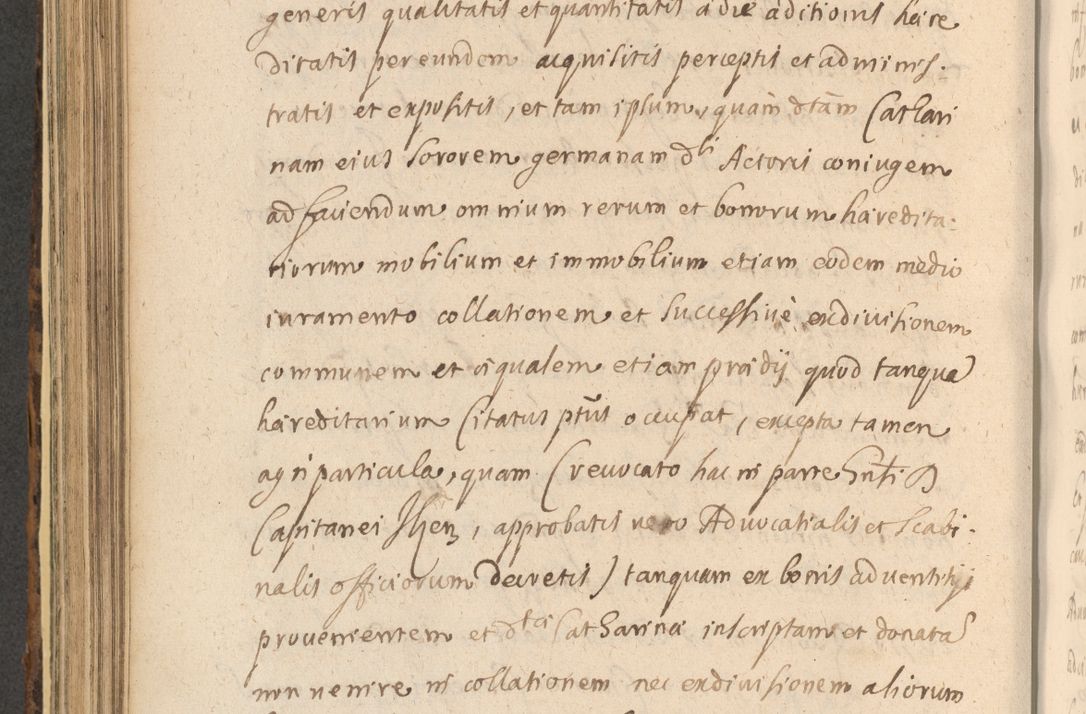 generis qualitatis et quantitatis à die aditionis hære
ditatis per eundem acquisitis perceptis et adminis-
tratis et expositis, et tam ipsum, quàm dtam Cathari
nam eius Sororem germanam dti Actoris coniugem
ad faciendum omnium rerum et bonorum hæredita-
riorum mobilium et immobilium etiam eodem medio
iuramento collationem et Successivè exdivisionem
communem et æqualem etiam prædij quod tanqua
hæreditarium Citatus ptus occupat, excepta tamen
agri particula, quam (revocato hac in parte D
Capitanei, approbatis vero Advocatialis et Scabi-
nalis officiorum decretis) tanquam ex bonis adventitijs
provenientem et dtæ Catharinæ inscriptam et donata
non venire in collationem nec exdivisionem aliorum